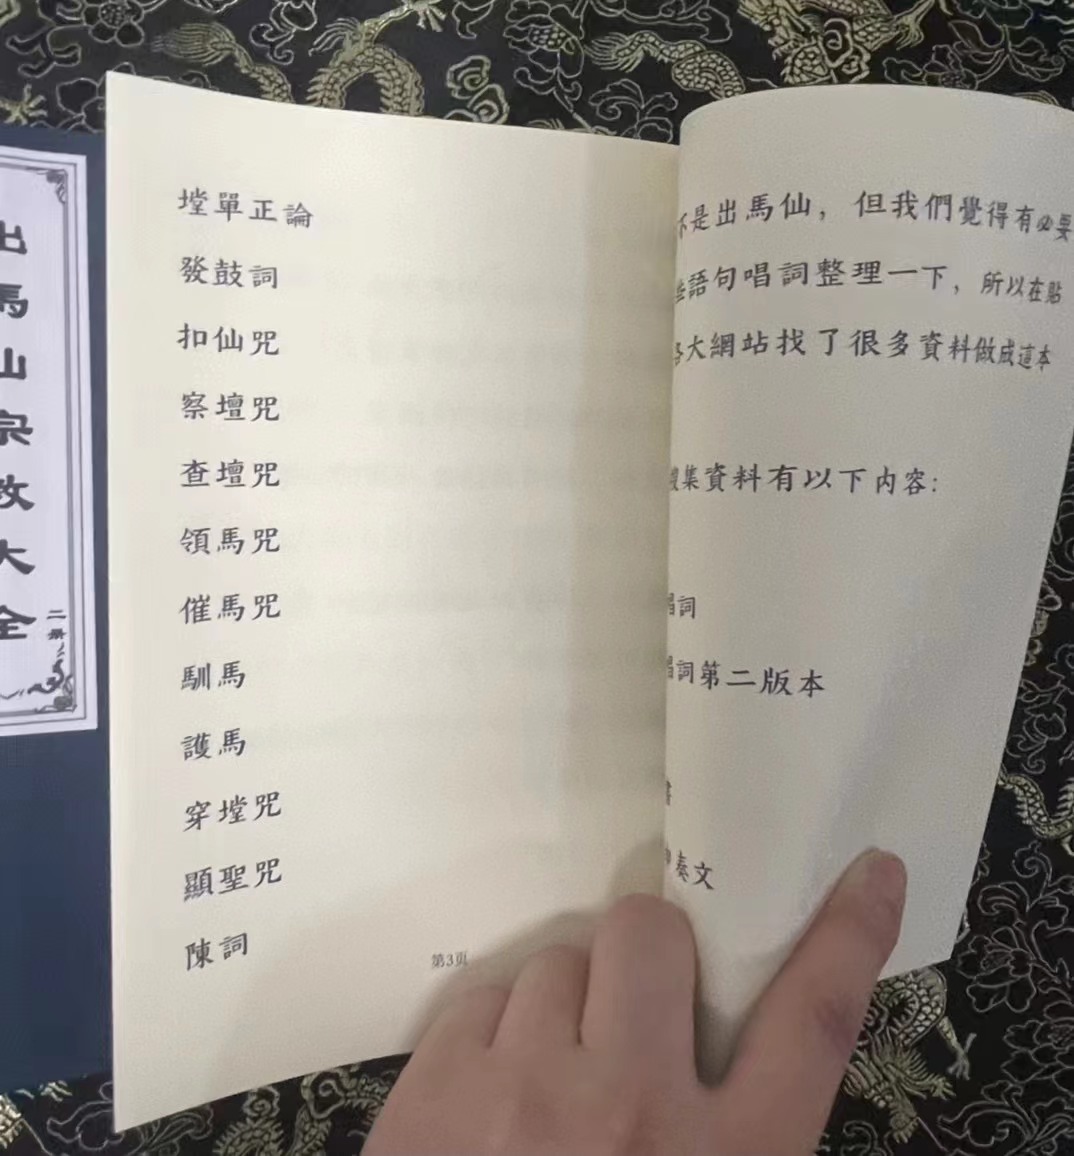 出馬仙宗教大全
二册
墥單正論
發鼓詞
扣仙咒
察壇咒
查壇咒
領馬咒
催馬咒
馴馬
護馬
穿墥咒
顯聖咒
陳詞
第3页
不是出馬仙，但我們覺得有必要
些語句唱詞整理一下，所以在貼
各大網站找了很多資料做成這本
搜集資料有以下内容：
唱詞
唱詞第二版本
書
奏文